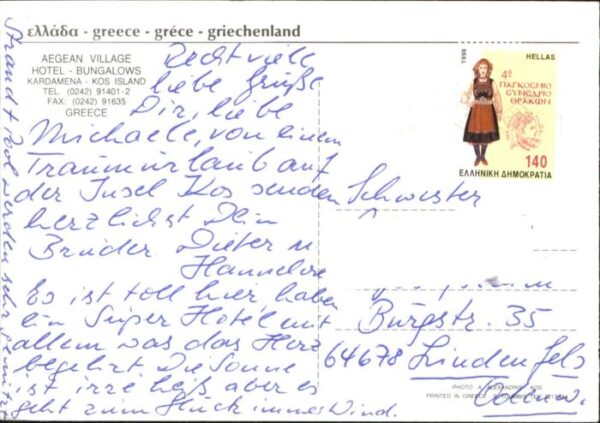 ελλάδα - greece - gréce - griechenland
AEGEAN VILLAGE
HOTEL - BUNGALOWS
KARDAMENA - KOS ISLAND
TEL. (0242) 91401-2
FAX: (0242) 91635
GREECE
Recht viele
liebe Grüße
Dir, liebe
Michaele, von einem
Traumurlaub auf
der Insel Kos senden
herzlichst Dein
Bruder Dieter u.
Hannelore
Es ist toll hier, haben
ein Super Hotel mit
allem was das Herz
begehrt. Die Sonne
ist irre heiß, aber es
geht zum Glück immer Wind.
Strand + Pool werden sehr genützt
Schwester
Burgstr. 35
64678 Lindenfels
1998
HELLAS
4º
ΠΑΓΚΟΣΜΙΟ
ΣΥΝΕΔΡΙΟ
ΘΡΑΚΩΝ
140
ΕΛΛΗΝΙΚΗ ΔΗΜΟΚΡΑΤΙΑ
PHOTO A. ALEXANDRIS KOS
PRINTED IN GREECE